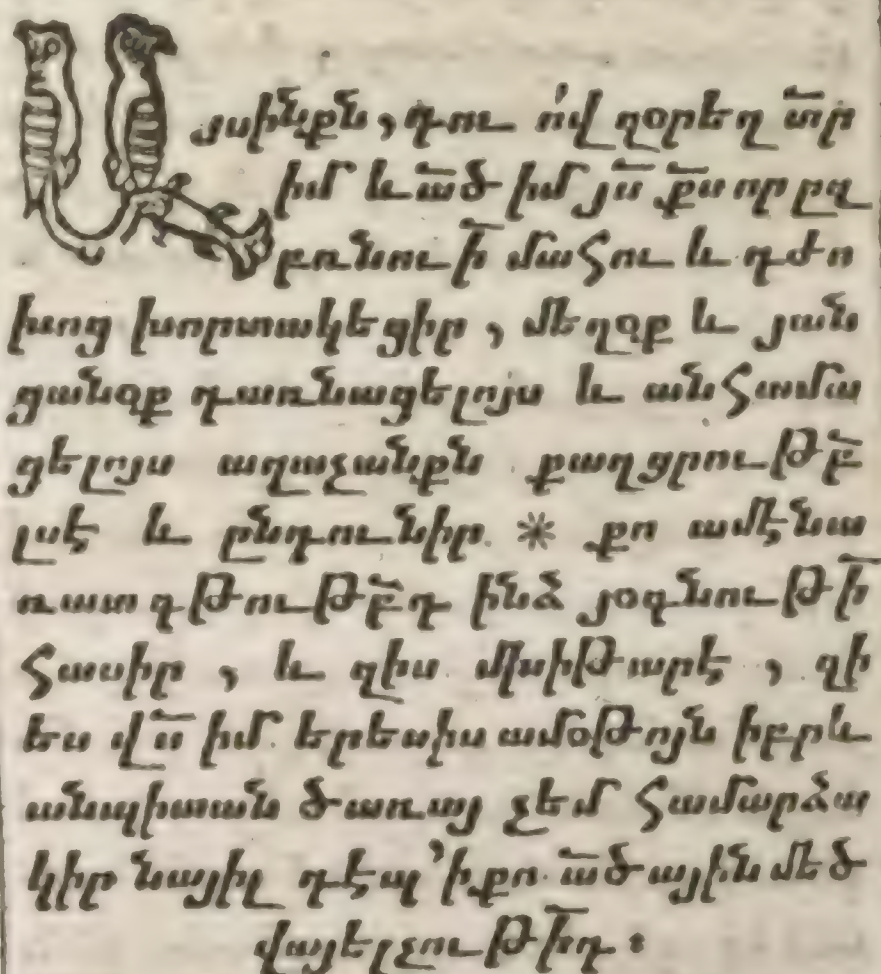 Այսինքն, դու ո՛վ զօրեղ տ̅ր
իմ և ա̅ծ իմ յս̅ ք̅ս որ ըզ
բռնուի̅ մահու և դժո
խոց խորտակեցիր, մեղօք և յան
ցանօք դառնացելոյս և անհամա
ցելոյս աղաչանքն քաղցրութբ̅
լսէ և ընդունիր. * քո ամենա
ռատ գթութբ̅դ ինձ յօգնութի̅
հասիր, և զիս մխիթարէ, զի
ես վս̅ իմ երեսիս ամօթոյն իբրև
անպիտան ծառայ չեմ համարձա
կիր նայիլ դէպ ՚ի քո ա̅ծային մեծ
վայելչութի̅դ։